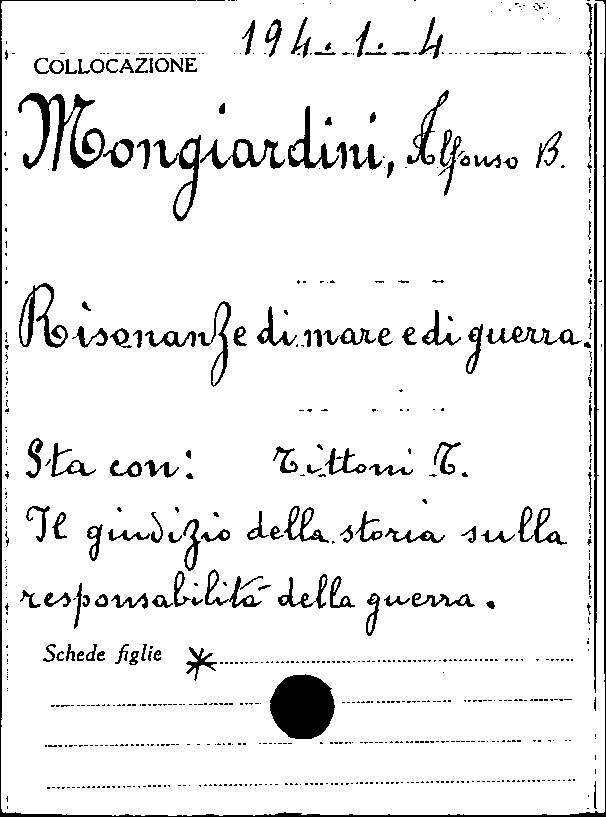 194.1.4
COLLOCAZIONE
Mongiardini, Alfonso B.
Risonanze di mare e di guerra.
Sta con: Tittoni T.
Il giudizio della storia sulla
responsabilità della guerra.
Schede figlie *